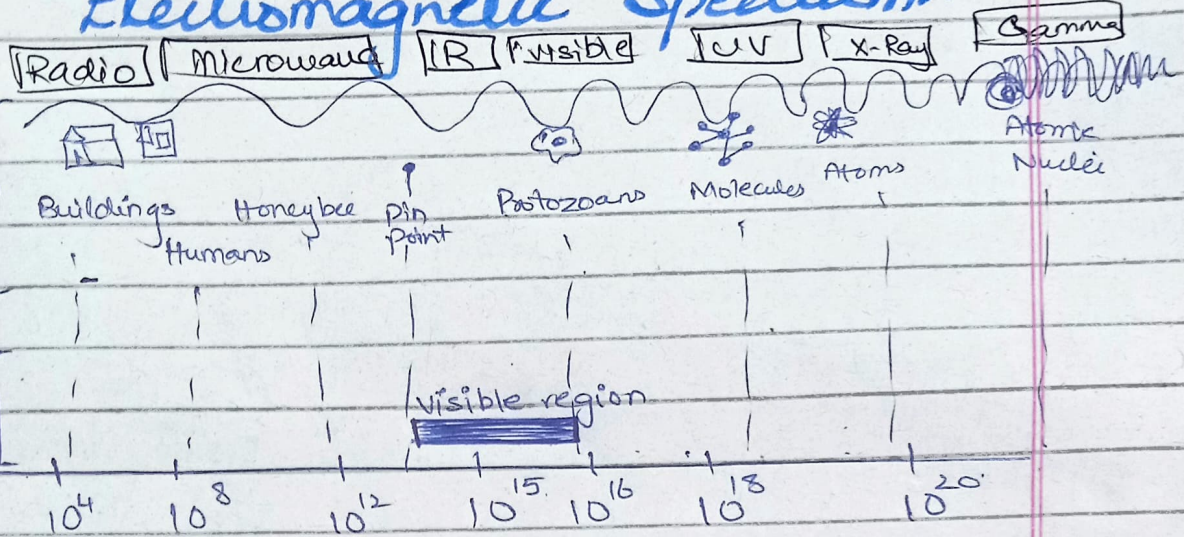 Electromagnetic Spectrum
Radio Microwave IR Visible UV X-Ray Gamma
Buildings Humans Honeybee Pin Point Protozoans Molecules Atoms Atomic Nuclei
visible region
10⁴ 10⁸ 10¹² 10¹⁵ 10¹⁶ 10¹⁸ 10²⁰